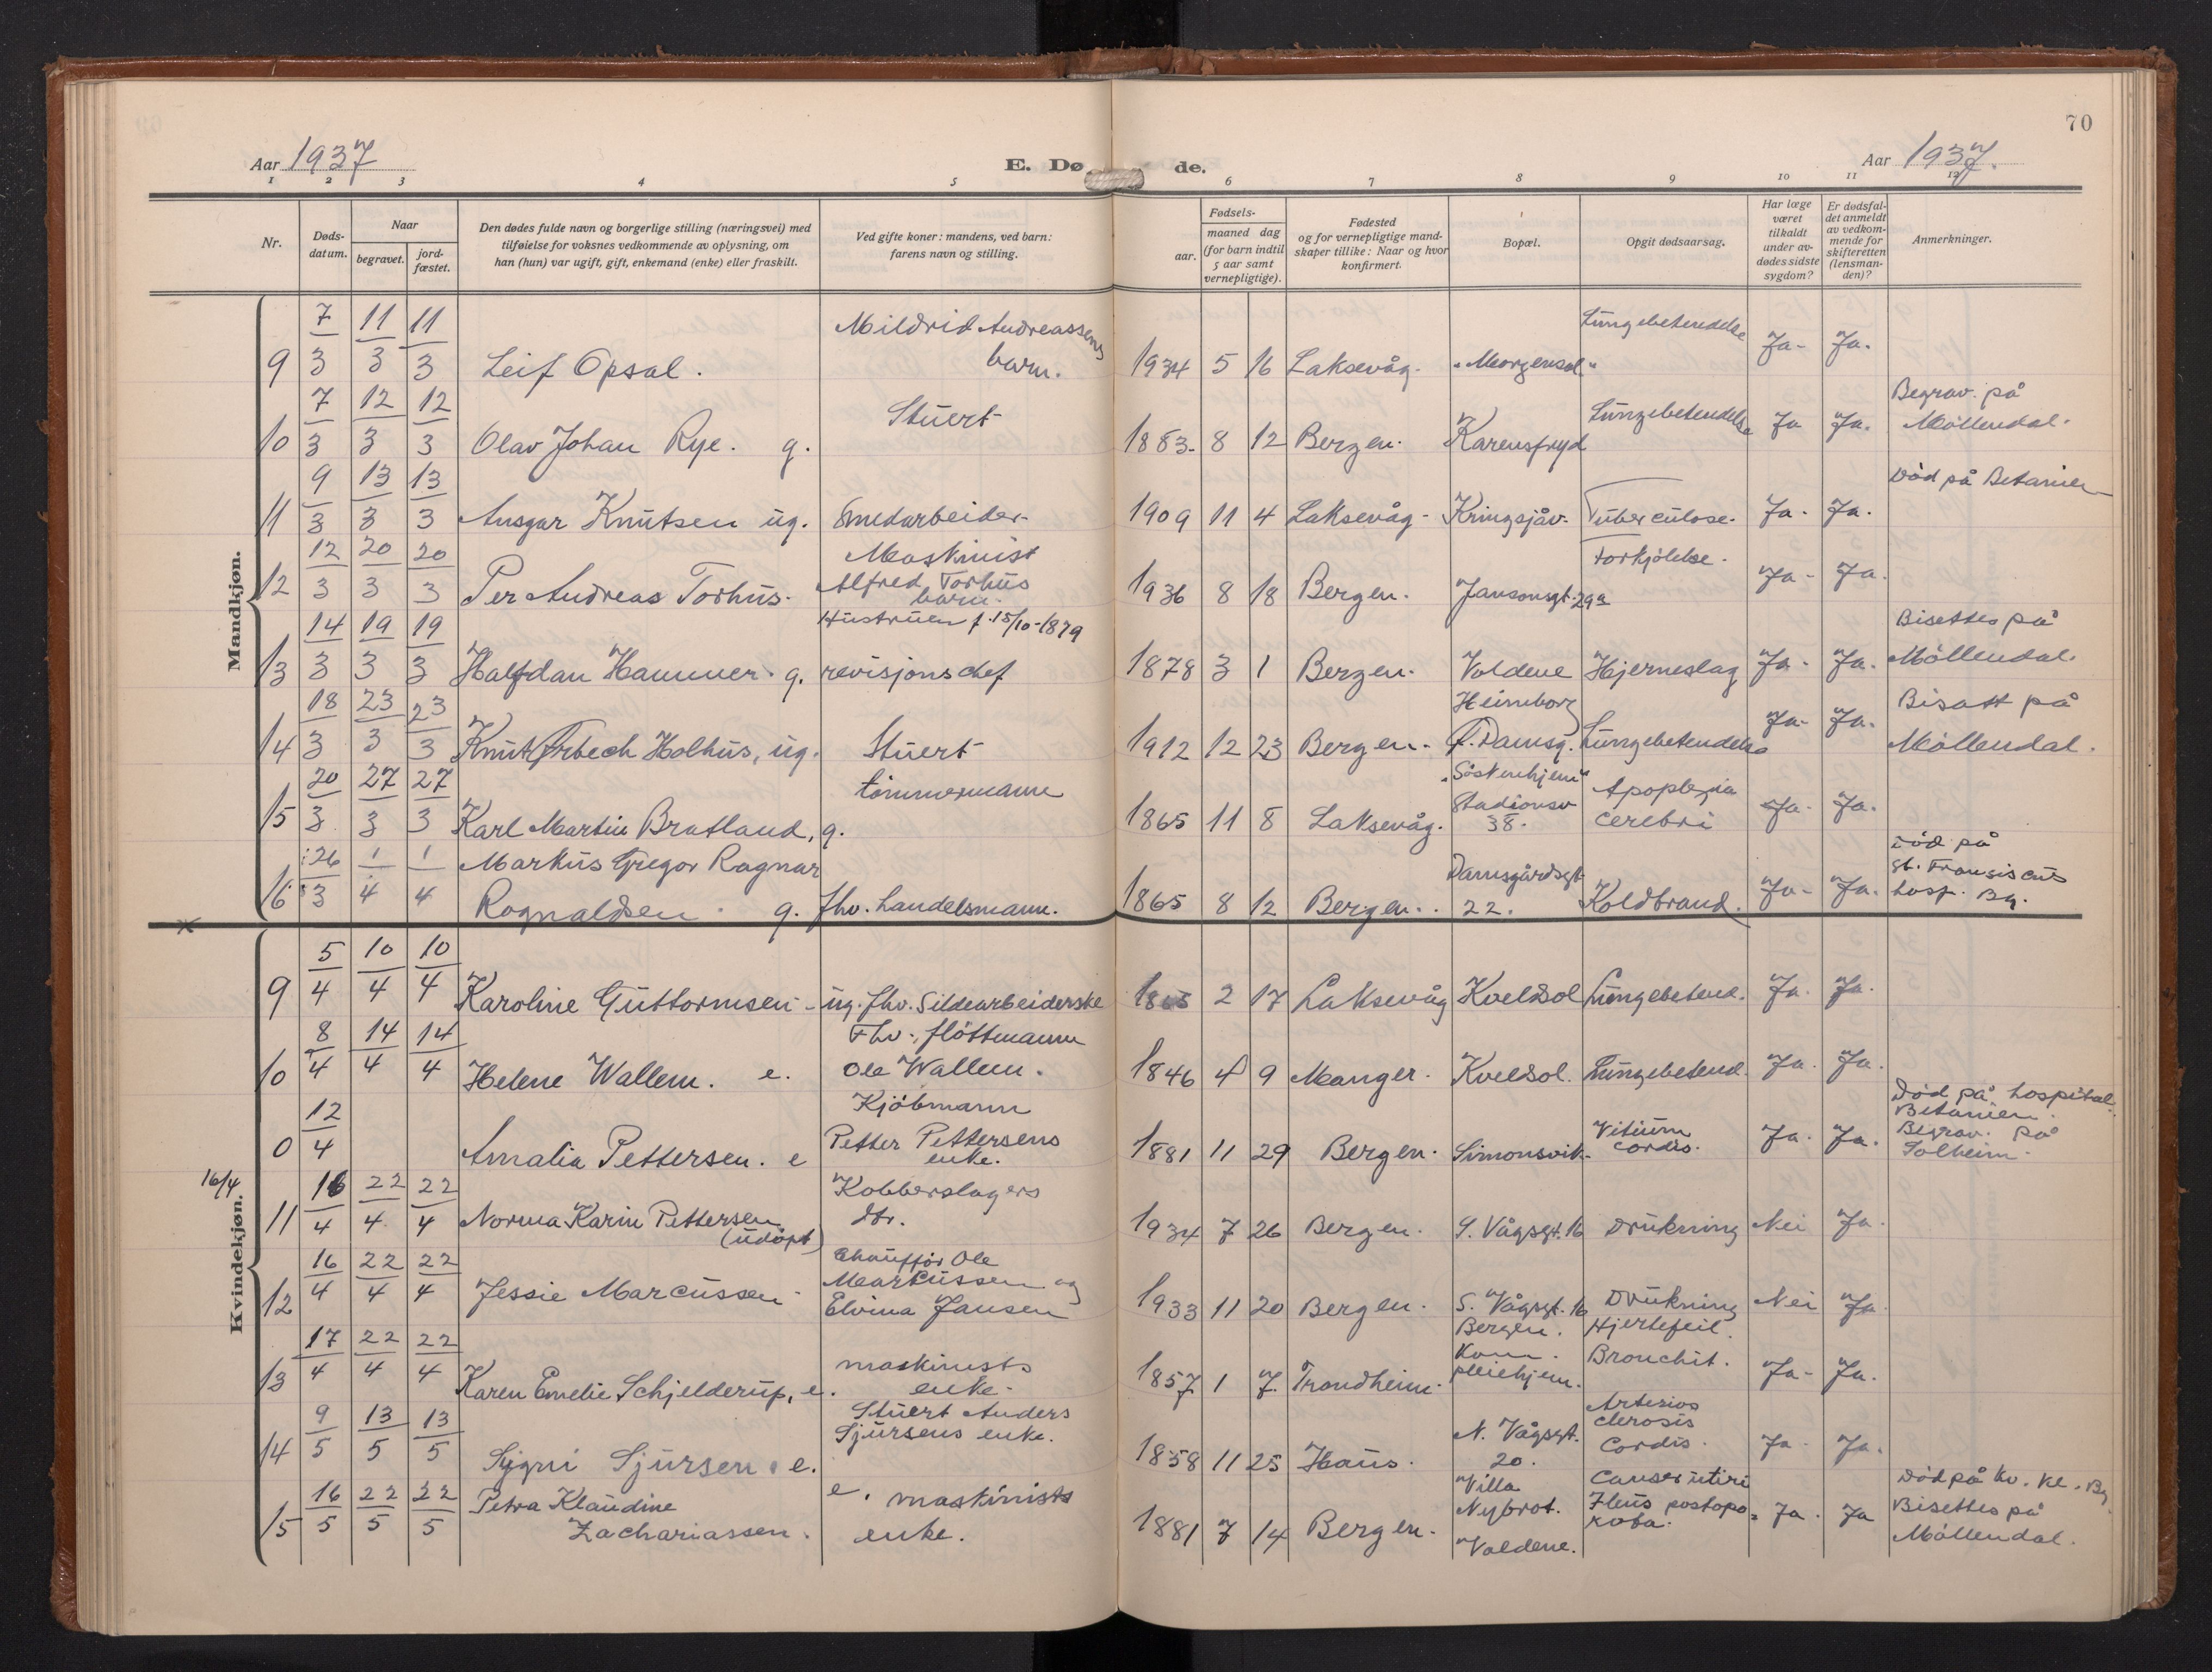 70
Aar 1937
E. Dø
de.
Aar 1937.
1 2 3 4 5 6 7 8 9 10 11 12
Nr.
Døds-
datum.
Naar
begravet.
jord-
fæstet.
Den dødes fulde navn og borgerlige stilling (næringsvei) med
tilføielse for voksnes vedkommende av oplysning, om
han (hun) var ugift, gift, enkemand (enke) eller fraskilt.
Ved gifte koner: mandens, ved barn:
farens navn og stilling.
Fødsels-
aar.
maaned dag
(for barn indtil
5 aar samt
vernepligtige).
Fødested
og for vernepligtige mand-
skaper tillike: Naar og hvor
konfirmert.
Bopæl.
Opgit dødsaarsag.
Har læge
været
tilkaldt
under av-
dødes sidste
sygdom?
Er dødsfal-
det anmeldt
av vedkom-
mende for
skifteretten
(lensman-
den)?
Anmerkninger.
Mandkjøn.
9 7/3 11/3 11/3 Leif Opsal. Mildrid Andreassens
barn. 1934 5 16 Laksevåg. "Morgensol" Lungebetendelse Ja- Ja.
10 7/3 12/3 12/3 Olav Johan Rye. g. Stuert 1883. 8 12 Bergen. Karensfryd Lungebetendelse Ja Ja. Begrav. på
Möllendal.
11 9/3 13/3 13/3 Ansgar Knutsen ug. Smedarbeider 1909 11 4 Laksevåg Kringsjåv. Tuberculose. Ja. Ja. Död på Betanien
12 12/3 20/3 20/3 Per Andreas Torhus. Maskinist
Alfred Torhus
barn. 1936 8 18 Bergen. Jansonsgt. 29a Forkjölelse. Ja- Ja.
13 14/3 19/3 19/3 Halfdan Hammer. g. Hustruen f. 15/10-1879
revisjonschef 1878 3 1 Bergen. Voldene Hjerneslag Ja- Ja. Bisettes på
Möllendal.
14 18/3 23/3 23/3 Knut Ørbech Holhus, ug. Stuert 1912 12 23 Bergen. Heimeborg
f. Damsg. Lungebetendelse Ja- Ja. Bisatt på
Möllendal.
15 20/3 27/3 27/3 Karl Martin Bratland, g. tömmermann 1865 11 8 Laksevåg. "Söskenhjem"
Stadionsv
38. Apoplexia
cerebri Ja- Ja.
16 26/3 1/4 1/4 Markus Gregor Ragnar
Rognaldsen. g. fhv. handelsmann. 1865 8 12 Bergen. Damsgårdsgt
22. Koldbrand. Ja- Ja. Död på
St. Fransiscus
hosp. Bg.
Kvindekjøn.
9 5/4 10/4 10/4 Karoline Guttormsen - ug. fhv. Sildearbeiderske 1865 2 17 Laksevåg Kveldsol Lungebetend. Ja. Ja.
10 8/4 14/4 14/4 Helene Wallem. e. Fhv. flöttmann
Ole Wallem. 1846 4 9 Manger. Kveldsol. Lungebetend. Ja. Ja.
0 12/4 Amalia Pettersen. e Kjöbmann
Petter Pettersens
enke. 1881 11 29 Bergen. Simonsvik. Vitium
cordis. Ja. Ja. Död på hospital
Betanien.
Begrav. på
Solheim.
16/4
11 16/4 22/4 22/4 Norma Karin Pettersen
(udöpt) Kobberslagers
dtr. 1934 7 26 Bergen. S. Vågsgt. 16 Drukning Nei Ja.
12 16/4 22/4 22/4 Jessie Marcussen Chaufför Ole
Markussen og
Elvina Jansen 1933 11 20 Bergen. S. Vågsgt. 16 Drukning Nei Ja
13 17/4 22/4 22/4 Karen Emelie Schjelderup, e. maskinists
enke. 1857 1 7 Trondheim. Bergen.
Kom.
pleiehjem. Hjertefeil.
Bronchit. Ja- Ja.
14 9/5 13/5 13/5 Sygni Sjursen. e. Stuert Anders
Sjursens enke. 1858 11 25 Haus. N. Vågsgt.
20. Arterios
clerosis
Cordis. Ja- Ja.
15 16/5 22/5 22/5 Petra Klaudine
Zachariassen. e. maskinists
enke. 1881 7 14 Bergen. Villa
Nybrot.
Voldene. Cancer utiri
Ileus postopo= Ja. Ja Död på kv. kl. Bg
Bisettes på
Möllendal.